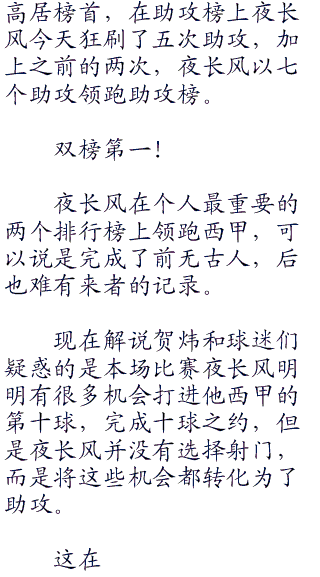 高居榜首，在助攻榜上夜长
风今天狂刷了五次助攻，加
上之前的两次，夜长风以七
个助攻领跑助攻榜。
双榜第一！
夜长风在个人最重要的
两个排行榜上领跑西甲，可
以说是完成了前无古人，后
也难有来者的记录。
现在解说贺炜和球迷们
疑惑的是本场比赛夜长风明
明有很多机会打进他西甲的
第十球，完成十球之约，但
是夜长风并没有选择射门，
而是将这些机会都转化为了
助攻。
这在